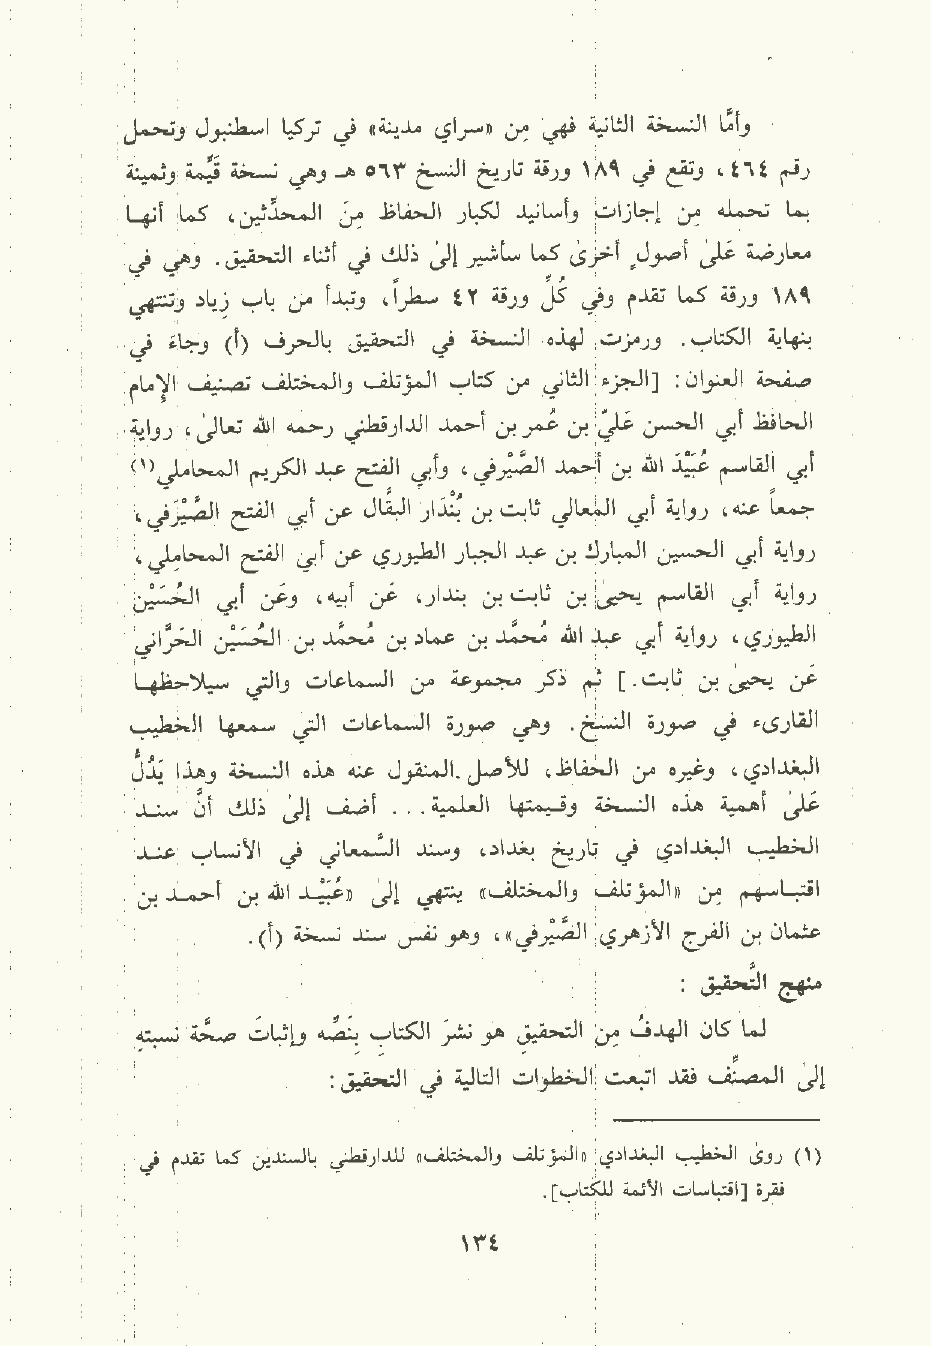 وأمَّا النسخة الثانية فهي مِن «سراي مدينة» في تركيا اسطنبول وتحمل
رقم ٤٦٤ ، وتقع في ١٨٩ ورقة تاريخ النسخ ٥٦٣ هـ وهي نسخة قَيِّمة وثمينة
بما تحمله من إجازات وأسانيد لكبار الحفاظ مِنَ المحدِّثين ، كما أنهـا
معارضة عَلىٰ أصولٍ أخرىٰ كما سأشير إلىٰ ذلك في أثناء التحقيق . وهي في
١٨٩ ورقة كما تقدم وفي كُلِّ ورقة ٤٢ سطراً ، وتبدأ من باب زِياد وتنتهي
بنهاية الكتاب . ورمزت لهذه النسخة في التحقيق بالحرف (أ) وجاءَ في
صفحة العنوان : [الجزء الثاني من كتاب المؤتلف والمختلف تصنيف الإِمام
الحافظ أبي الحسن عَليّ بن عُمر بن أحمد الدارقطني رحمه الله تعالىٰ ، رواية
أبي القاسم عُبَيْدَ الله بن أحمد الصَّيْرفي ، وأبي الفتح عبد الكريم المحاملي(١)
جمعاً عنه ، رواية أبي المعالي ثابت بن بُنْدَار البقَّال عن أبي الفتح الصَّيْرَفي ،
رواية أبي الحسين المبارك بن عبد الجبار الطيوري عن أبي الفتح المحامِلي ،
رواية أبي القاسم يحيىٰ بن ثابت بن بندار ، عَن أبيه ، وعَن أبي الحُسَيْن
الطيوري ، رواية أبي عبد الله مُحمَّد بن عماد بن مُحمَّد بن الحُسَيْن الحَرَّاني
عَن يحيىٰ بن ثابت . ] ثم ذكر مجموعة من السماعات والتي سيلاحظهـا
القارىء في صورة النسخ . وهو صورة السماعات التي سمعها الخطيب
البغدادي ، وغيره من الحفاظ ، للأصل . المنقول عنه هذه النسخة وهذا يَدُلُّ
عَلىٰ أهمية هذه النسخة وقيمتها العلمية . . . أضف إلىٰ ذلك أنَّ سنـد
الخطيب البغدادي في تاريخ بغداد ، وسند السَّمعاني في الأنساب عنـد
اقتبـاسهم مِن «المؤتلف والمختلف» ينتهي إلىٰ «عُبَيْـد الله بن أحمـد بن
عثمان بن الفرج الأزهري الصَّيْرفي» ، وهو نفس سند نسخة (أ) .
منهج التَّحقيق :
لما كان الهدفُ مِن التحقيق هو نشرَ الكتابِ بِنَصِّه وإثباتَ صحَّة نسبتِهِ
إلىٰ المصنِّف فقد اتبعت الخطوات التالية في التحقيق :
(١) روىٰ الخطيب البغدادي «المؤتلف والمختلف» للدارقطني بالسندين كما تقدم في
فقرة [اقتباسات الأئمة للكتاب] .
١٣٤